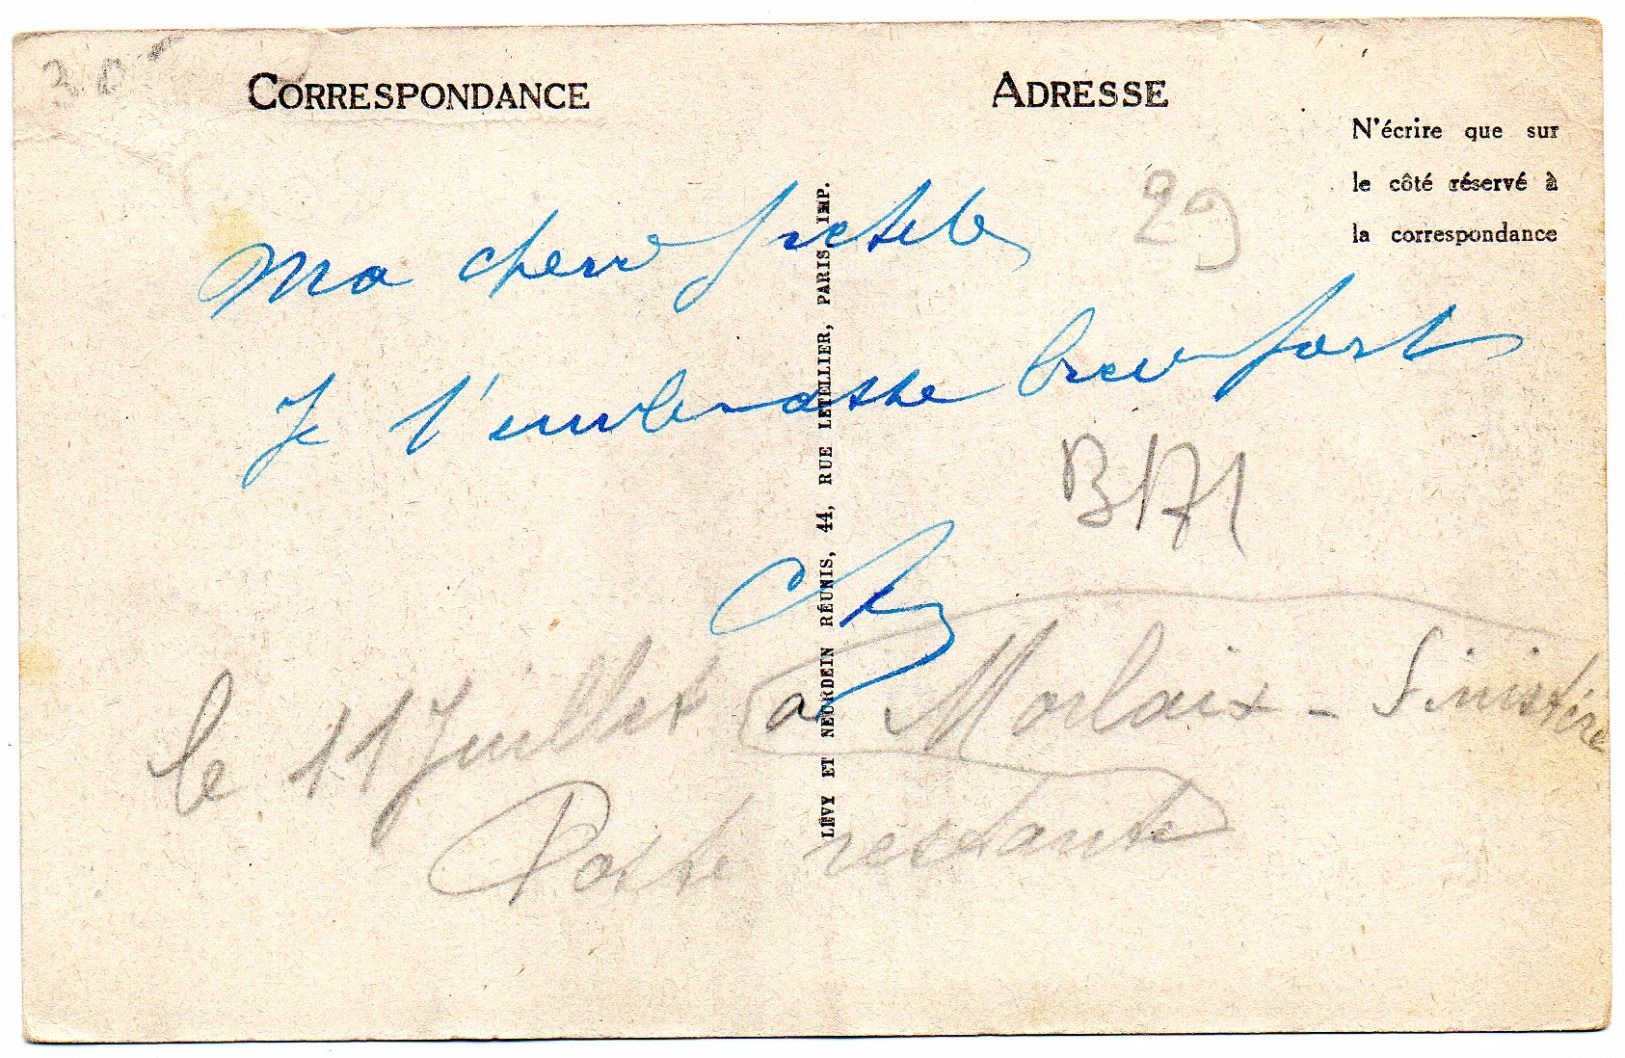 30
CORRESPONDANCE
ADRESSE
N'écrire que sur
le côté réservé à
la correspondance
29
Ma chere
Je t'embrasse bien fort
B171
LÉVY ET NEURDEIN RÉUNIS, 44, RUE LETELLIER, PARIS IMP.
le 11 Juillet a Morlaix - Finistère
Poste restante